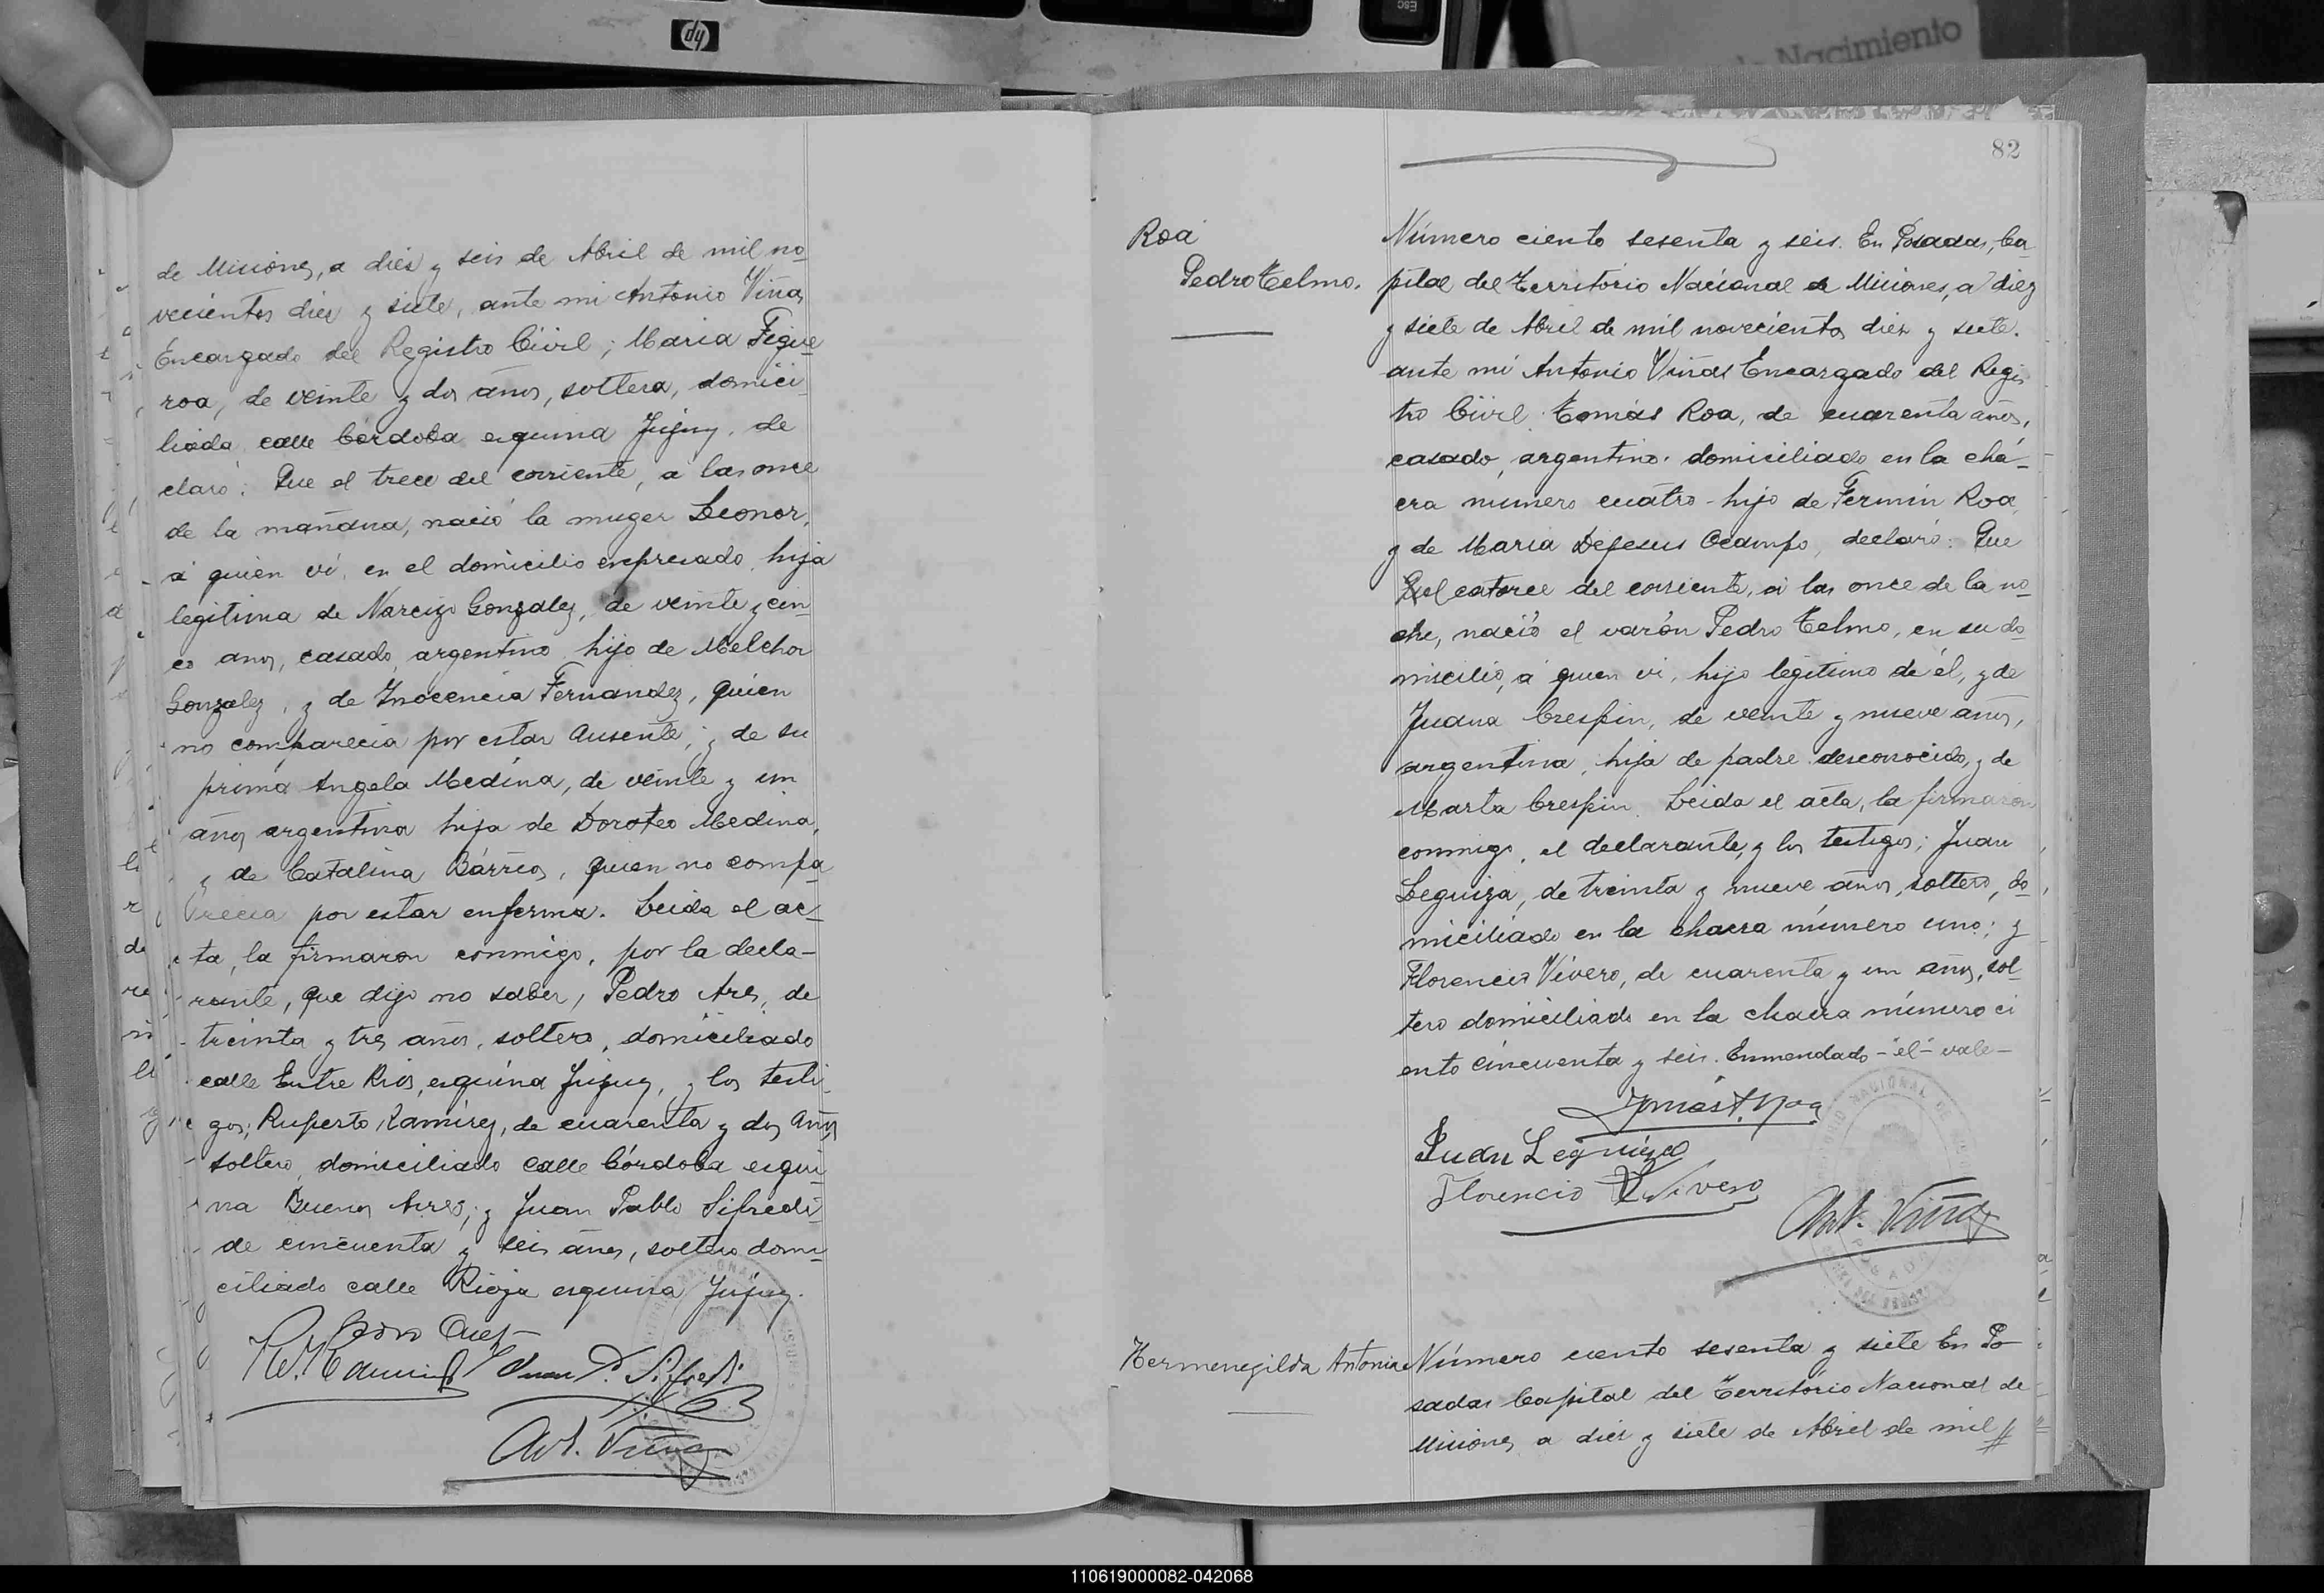 hp
ESC
de Nacimiento
de Misiones, a diez y seis de Abril de mil no-
vecientos diez y siete, ante mi Antonio Viñas
Encargado del Registro Civil; Maria Figue
roa, de veinte y dos años, soltera, domici-
liada calle Córdoba esquina Jujuy, de
claró: Que el trece del corriente, a las once
de la mañana, nació la muger Leonor,
a quien vi, en el domicilio expresado, hija
legitima de Narcizo Gonzalez, de veinte y cin-
co años, casado, argentino, hijo de Melchor
Gonzalez, y de Inocencia Fernandez, quien
no comparecia por estar ausente; y de su
prima Angela Medina, de veinte y un
años argentina hija de Doroteo Medina,
y de Catalina Bárrios, quien no compa
recia por estar enferma. Leida el ac-
ta, la firmaron conmigo, por la decla-
rante, que dijo no saber, Pedro Ares, de
treinta y tres años, soltero, domiciliado
calle Entre Rios, esquina Jujuy, y los testi-
gos; Ruperto Ramirez, de cuarenta y dos años
soltero, domiciliado calle Córdoba esqui-
na Buenos Aires; y Juan Pablo Sifredi-
de cincuenta y seis años, soltero domi-
ciliado calle Rioja esquina Jujuy.
Pedro Ares
R. Ramirez Juan P. Sifredi
Ant. Viñas
82
Roa
Pedro Telmo.
Número ciento sesenta y seis. En Posadas, Ca-
pital del Territorio Nacional de Misiones, a diez
y siete de Abril de mil novecientos diez y siete.
ante mi Antonio Viñas Encargado del Regis
tro Civil. Tomás Roa, de cuarenta años,
casado, argentino. domiciliado en la chá-
cra número cuatro - hijo de Fermin Roa,
y de Maria Dejesus Ocampo, declaró: Que
el catorce del corriente, a las once de la no-
che, nació el varón Pedro Telmo, en su do-
micilio, a quien vi, hijo legitimo de él, y de
Juana Crespin, de veinte y nueve años,
argentina, hija de padre desconocido, y de
Marta Crespin. Leida el acta, la firmaron
conmigo, el declarante, y los testigos; Juan
Leguiza, de treinta y nueve años, soltero, do-
miciliado en la chacra número uno; y
Florencio Vivero, de cuarenta y un años, sol-
tero domiciliado en la chacra número ci
ento cincuenta y seis. Enmendado - "el" - vale -
Tomás Roa
Juan Leguiza
Florencio Vivero
Ant. Viñas
POSADAS
Hermenegilda Antonia
Número ciento sesenta y siete En Po-
sadas Capital del Territorio Nacional de
Misiones, a diez y siete de Abril de mil //
110619000082-042068